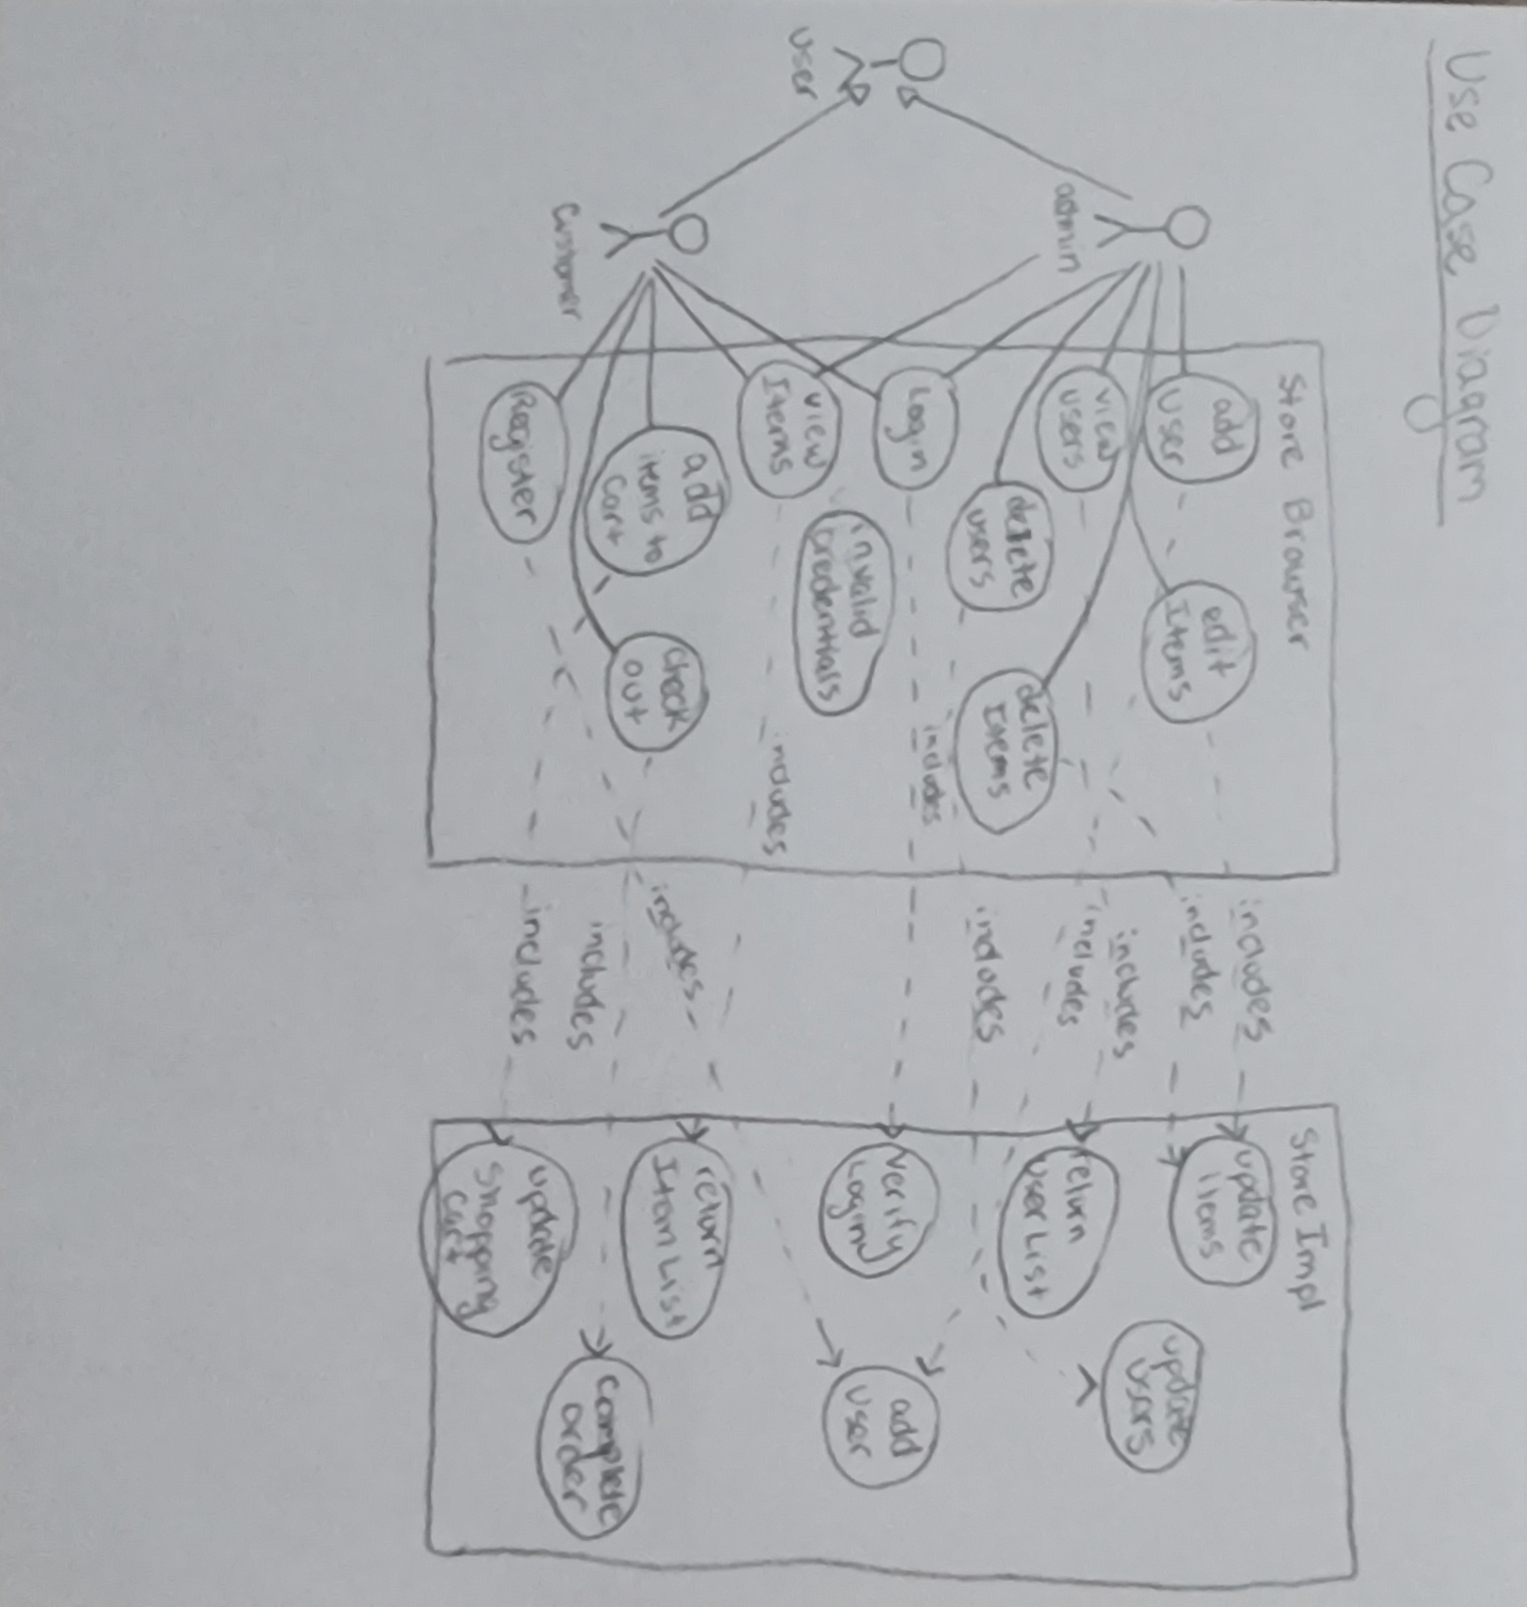 Use Case Diagram
Store Browser
add
User
edit
Items
view
users
delete
users
delete
Items
Login
invalid
credentials
view
Items
add
items to
Cart
Check
out
Register
admin
User
Customer
includes
includes
includes
includes
includes
includes
includes
includes
includes
includes
Store Impl
update
items
update
users
return
User List
verify
Login
add
User
return
Item List
Complete
order
update
Shopping
Cart